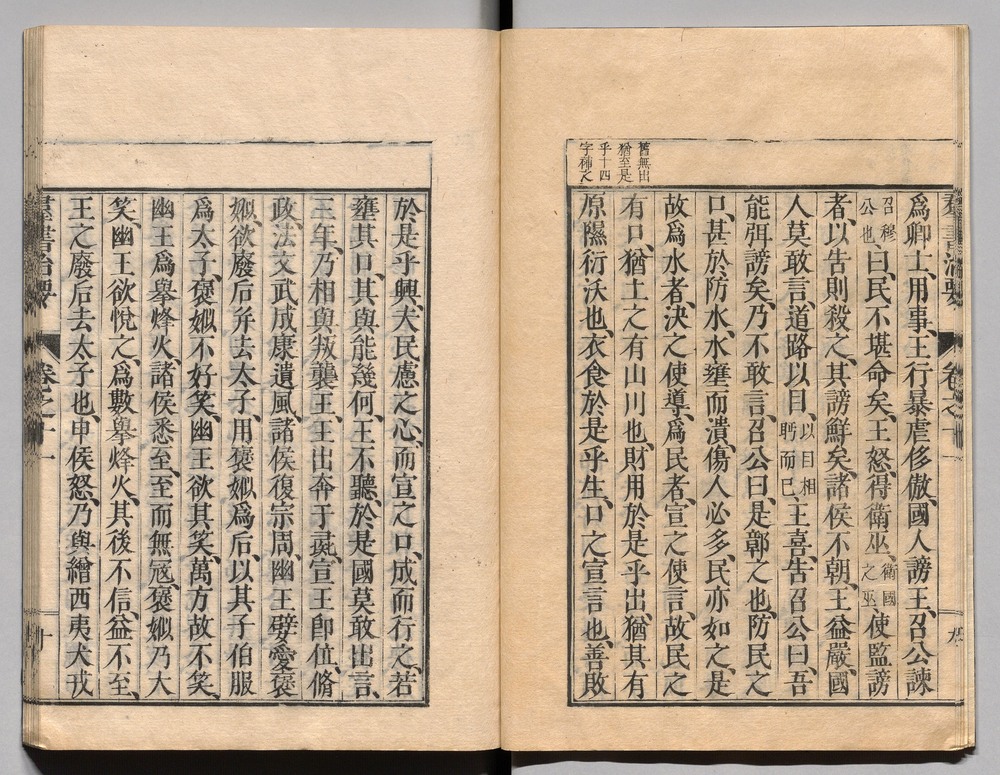 舊無出
猶至是
乎十四
字補之
爲卿士、用事、王行暴虐侈傲、國人謗王、召公諫
召穆
公也、曰、民不堪命矣、王怒、得衛巫、衛國
之巫、使監謗
者、以告則殺之、其謗鮮矣、諸侯不朝、王益嚴、國
人莫敢言道路以目、以目相
眄而已、王喜、告召公曰、吾
能弭謗矣、乃不敢言、召公曰、是鄣之也、防民之
口、甚於防水、水壅而潰、傷人必多、民亦如之、是
故爲水者、決之使導、爲民者、宣之使言、故民之
有口、猶土之有山川也、財用於是乎出、猶其有
原隰衍沃也、衣食於是乎生、口之宣言也、善敗
於是乎興、夫民慮之心、而宣之口、成而行之、若
壅其口、其與能幾何、王不聽、於是國莫敢出言、
三年、乃相與叛襲王、王出奔于彘、宣王即位、脩
政、法文武成康遺風、諸侯復宗周、幽王嬖愛褒
姒、欲廢后幷去太子、用褒姒爲后、以其子伯服
爲太子、褒姒不好笑、幽王欲其笑、萬方故不笑、
幽王爲舉烽火、諸侯悉至、至而無寇、褒姒乃大
笑、幽王欲悅之、爲數舉烽火、其後不信、益不至、
王之廢后去太子也、申侯怒、乃與繒西夷犬戎
羣書治要
卷之十一
十